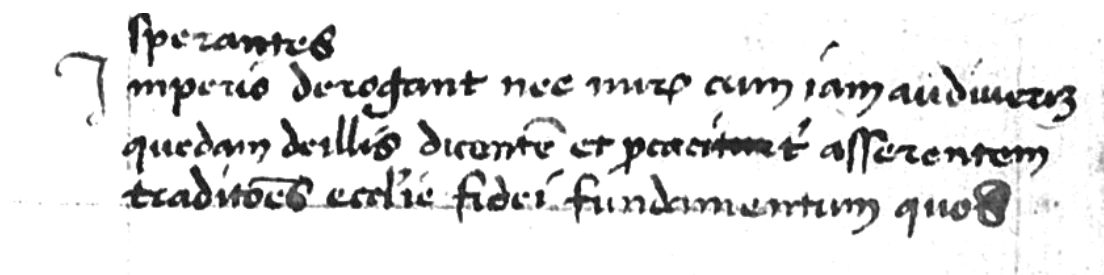 sperantes
Imperio derogant nec mirũ cum iam audiverim
quedam de illis dicentẽ et ꝓcacit t̕ asserentem
traditões eccl'ie fidei fundamentum quos